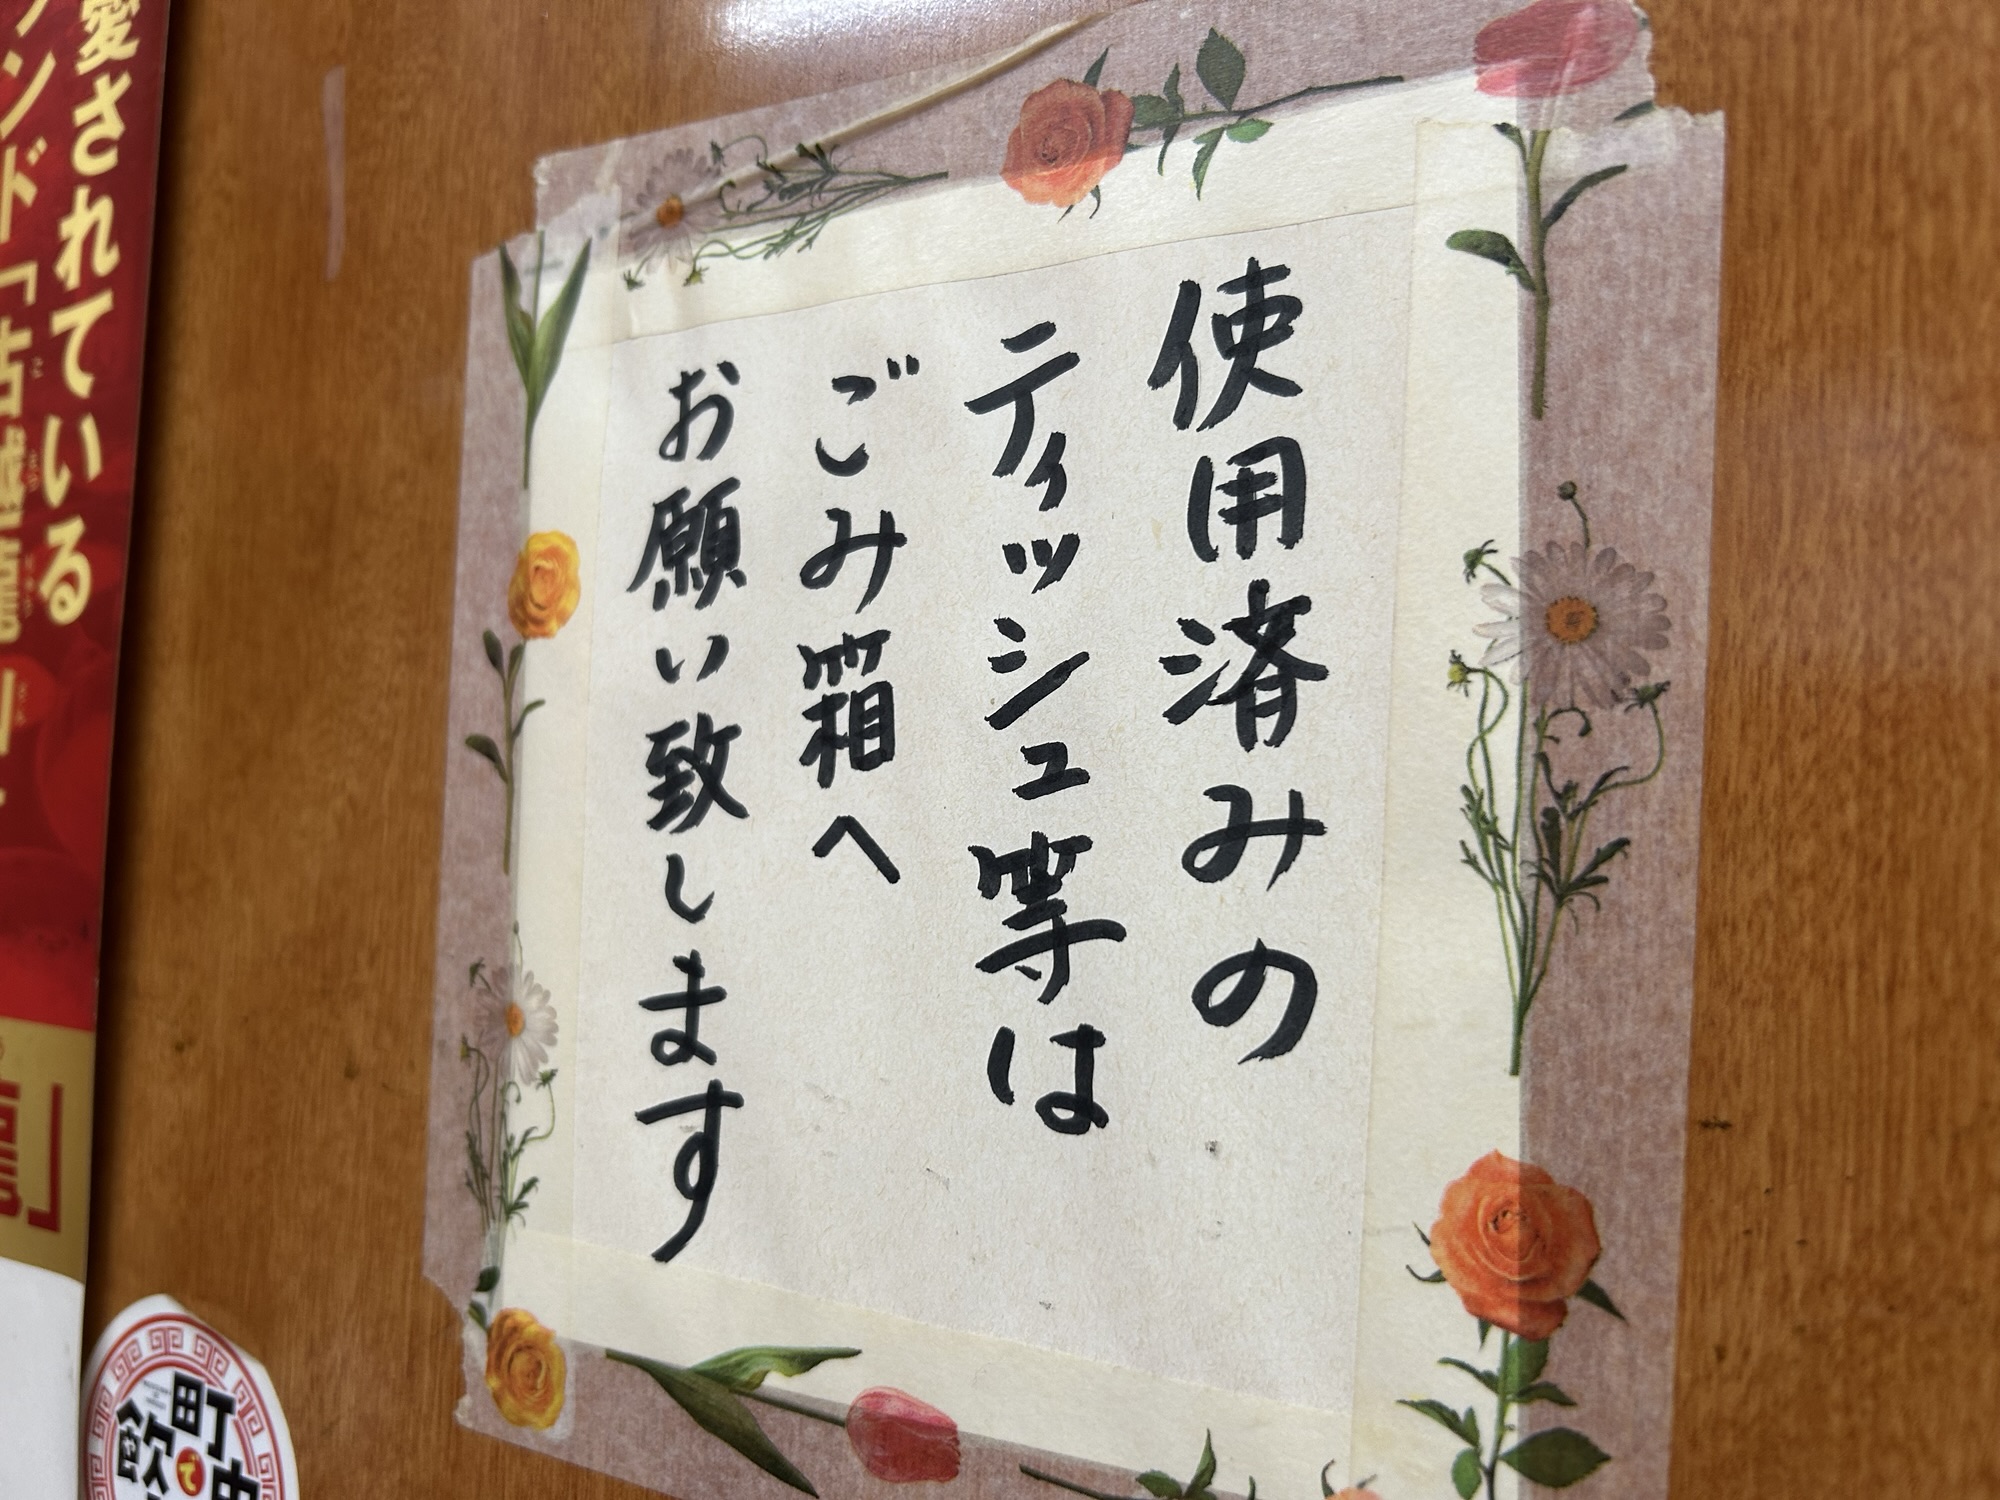 使用済みの
ティッシュ等は
ごみ箱へ
お願い致します
愛されている
ンド「古越龍山
町
で
飲